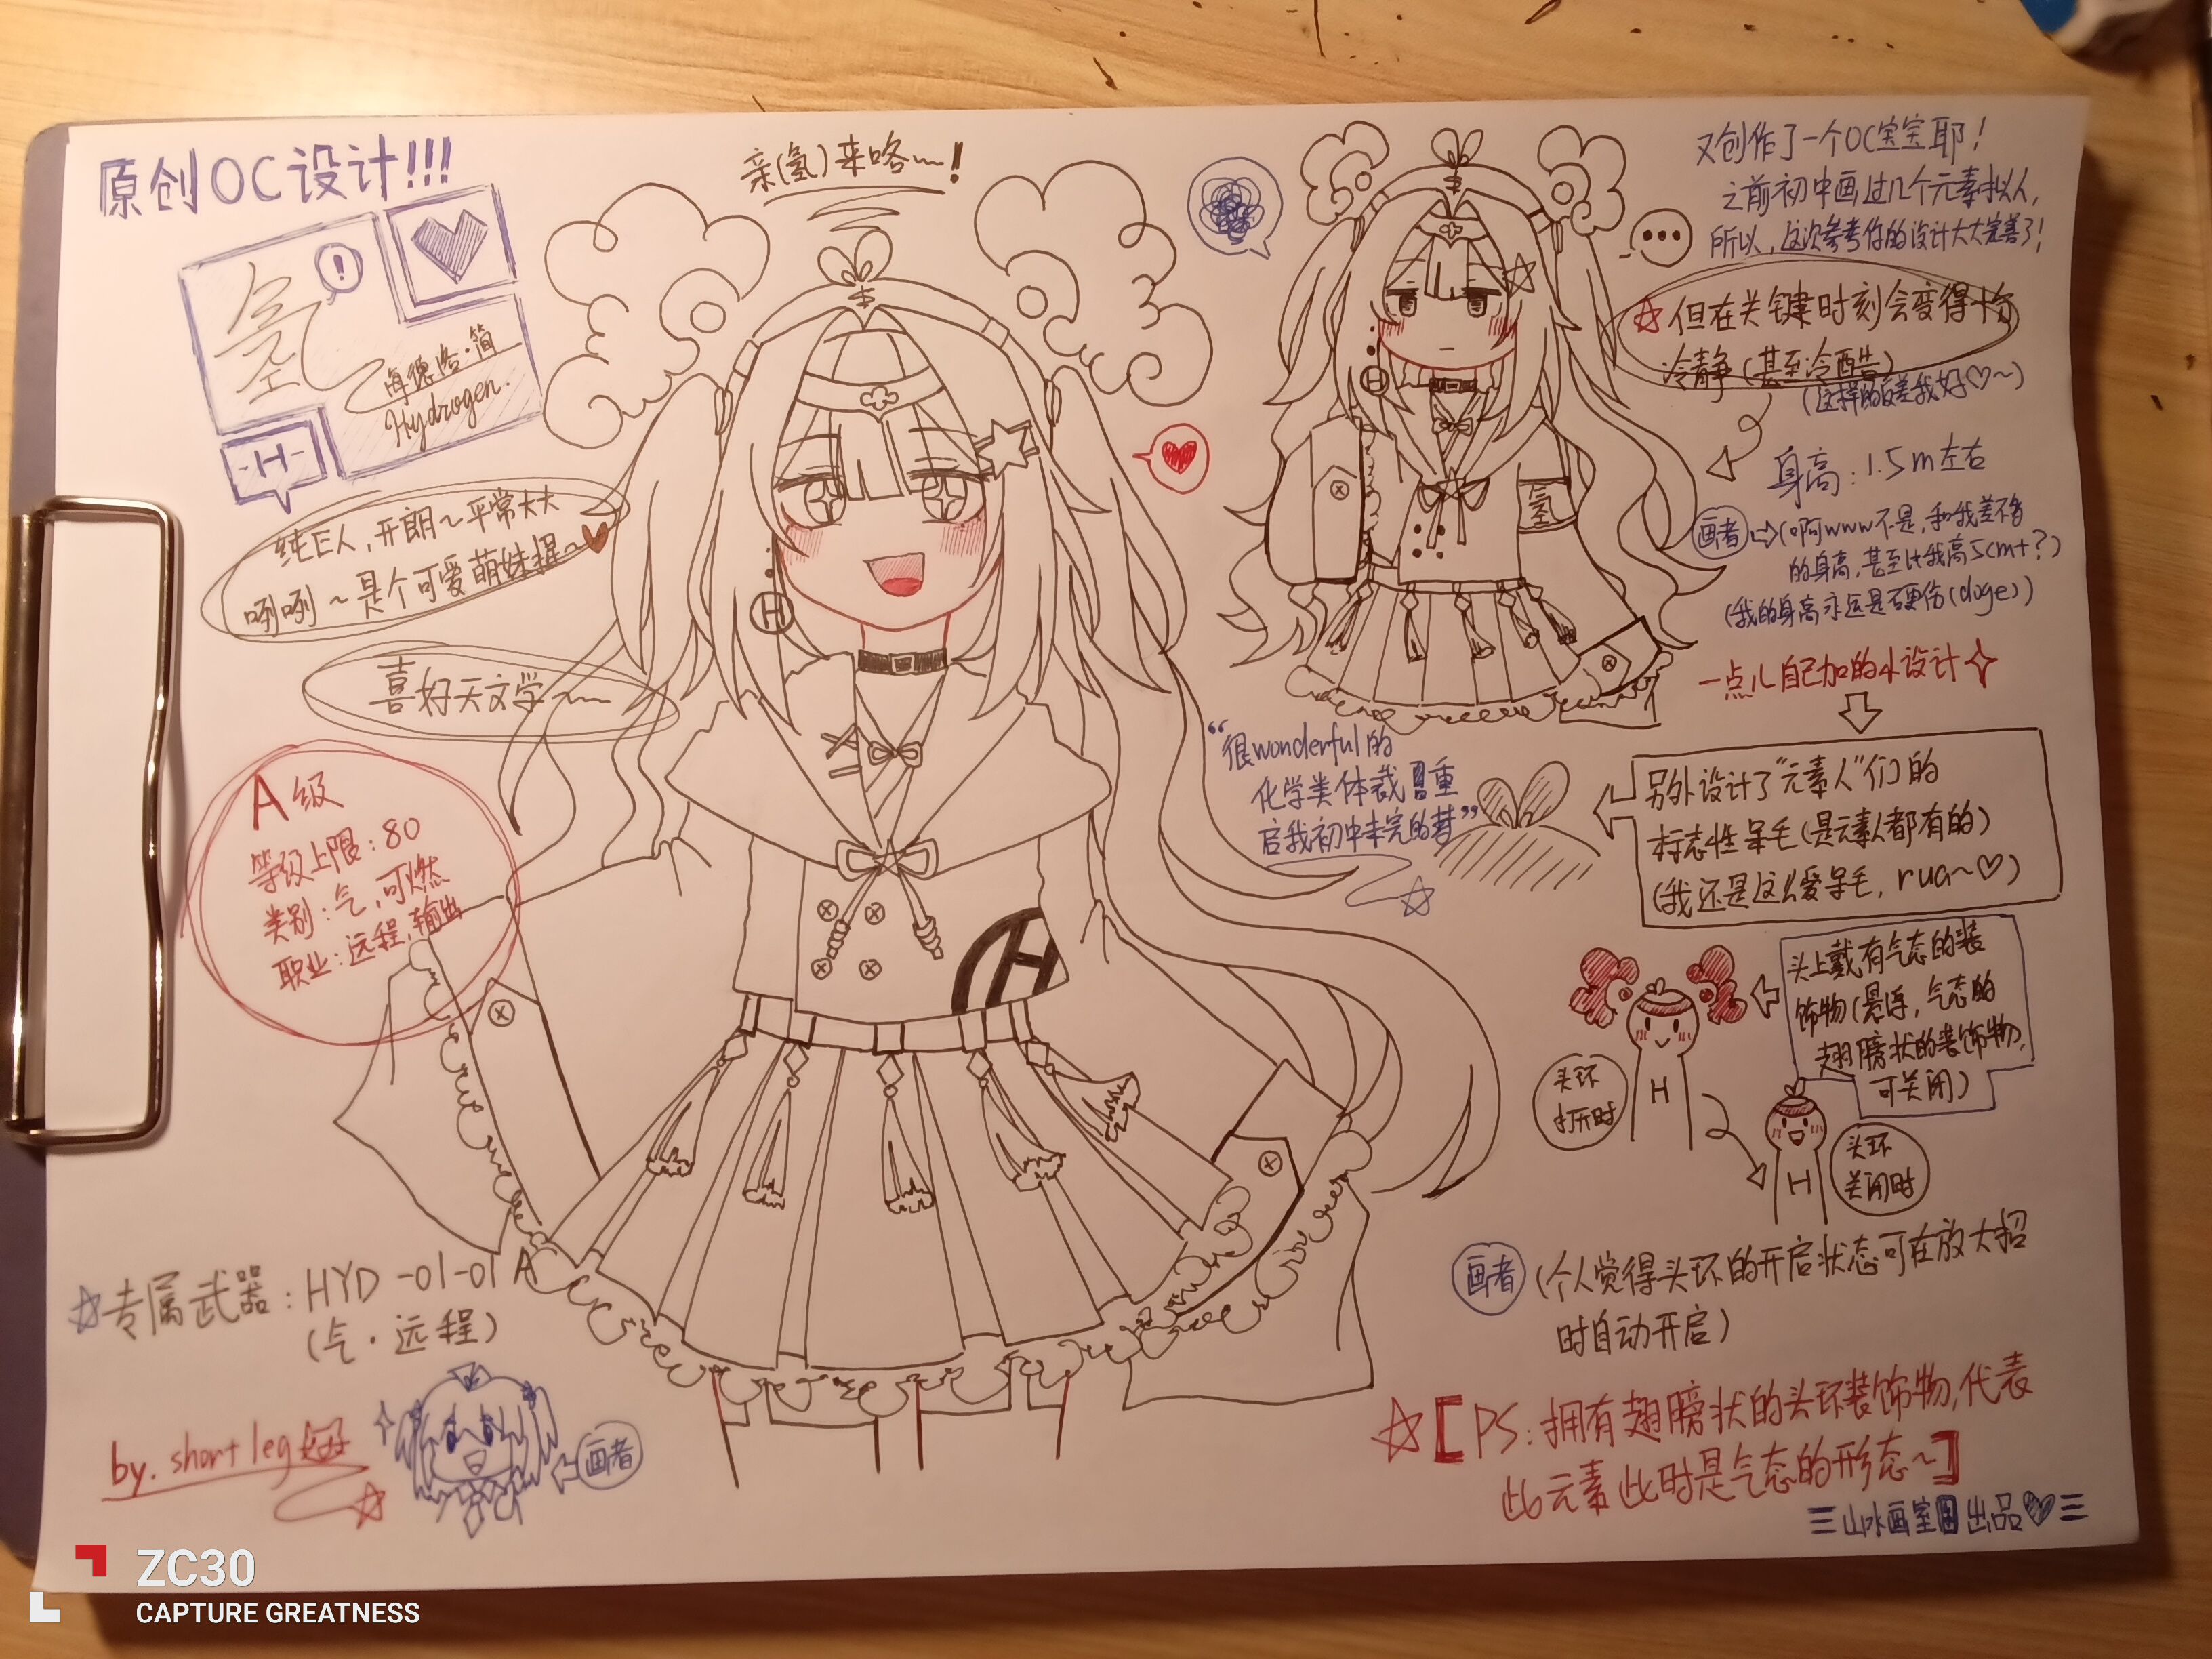 原创OC设计!!!
亲(氢)来咯~~!
氢
!
海德洛·简
Hydrogen.
-H-
纯E人,开朗~平常大大
咧咧~是个可爱萌妹捏~
喜好天文学~~
A级
等级上限:80
类别:气,可燃
职业:远程,输出
H
H
☆专属武器:HYD-01-01A
(气·远程)
by.short leg
画者
又创作了一个OC宝宝耶!
之前初中画过几个元素拟人,
所以,这次参考你的设计大大完善了!
☆但在关键时刻会变得十分
冷静(甚至冷酷)
(这样的反差我好♡~)
身高:1.5m左右
画者⇨(啊www不是,和我差不多
的身高,甚至比我高5cm+?)
(我的身高永远是硬伤(doge))
H
氢
一点儿自己加的小设计
“很wonderful的
化学类体裁重
启我初中未完的梦”
另外设计了“元素人”们的
标志性呆毛(是元素人都有的)
(我还是这么爱呆毛,rua~♡)
头上戴有气态的装
饰物(悬浮,气态的
翅膀状的装饰物,
可关闭)
头环
打开时
H
头环
关闭时
H
画者(个人觉得头环的开启状态可在放大招
时自动开启)
☆[PS:拥有翅膀状的头环装饰物,代表
此元素此时是气态的形态~]
三山水画室出品♡三
ZC30
CAPTURE GREATNESS